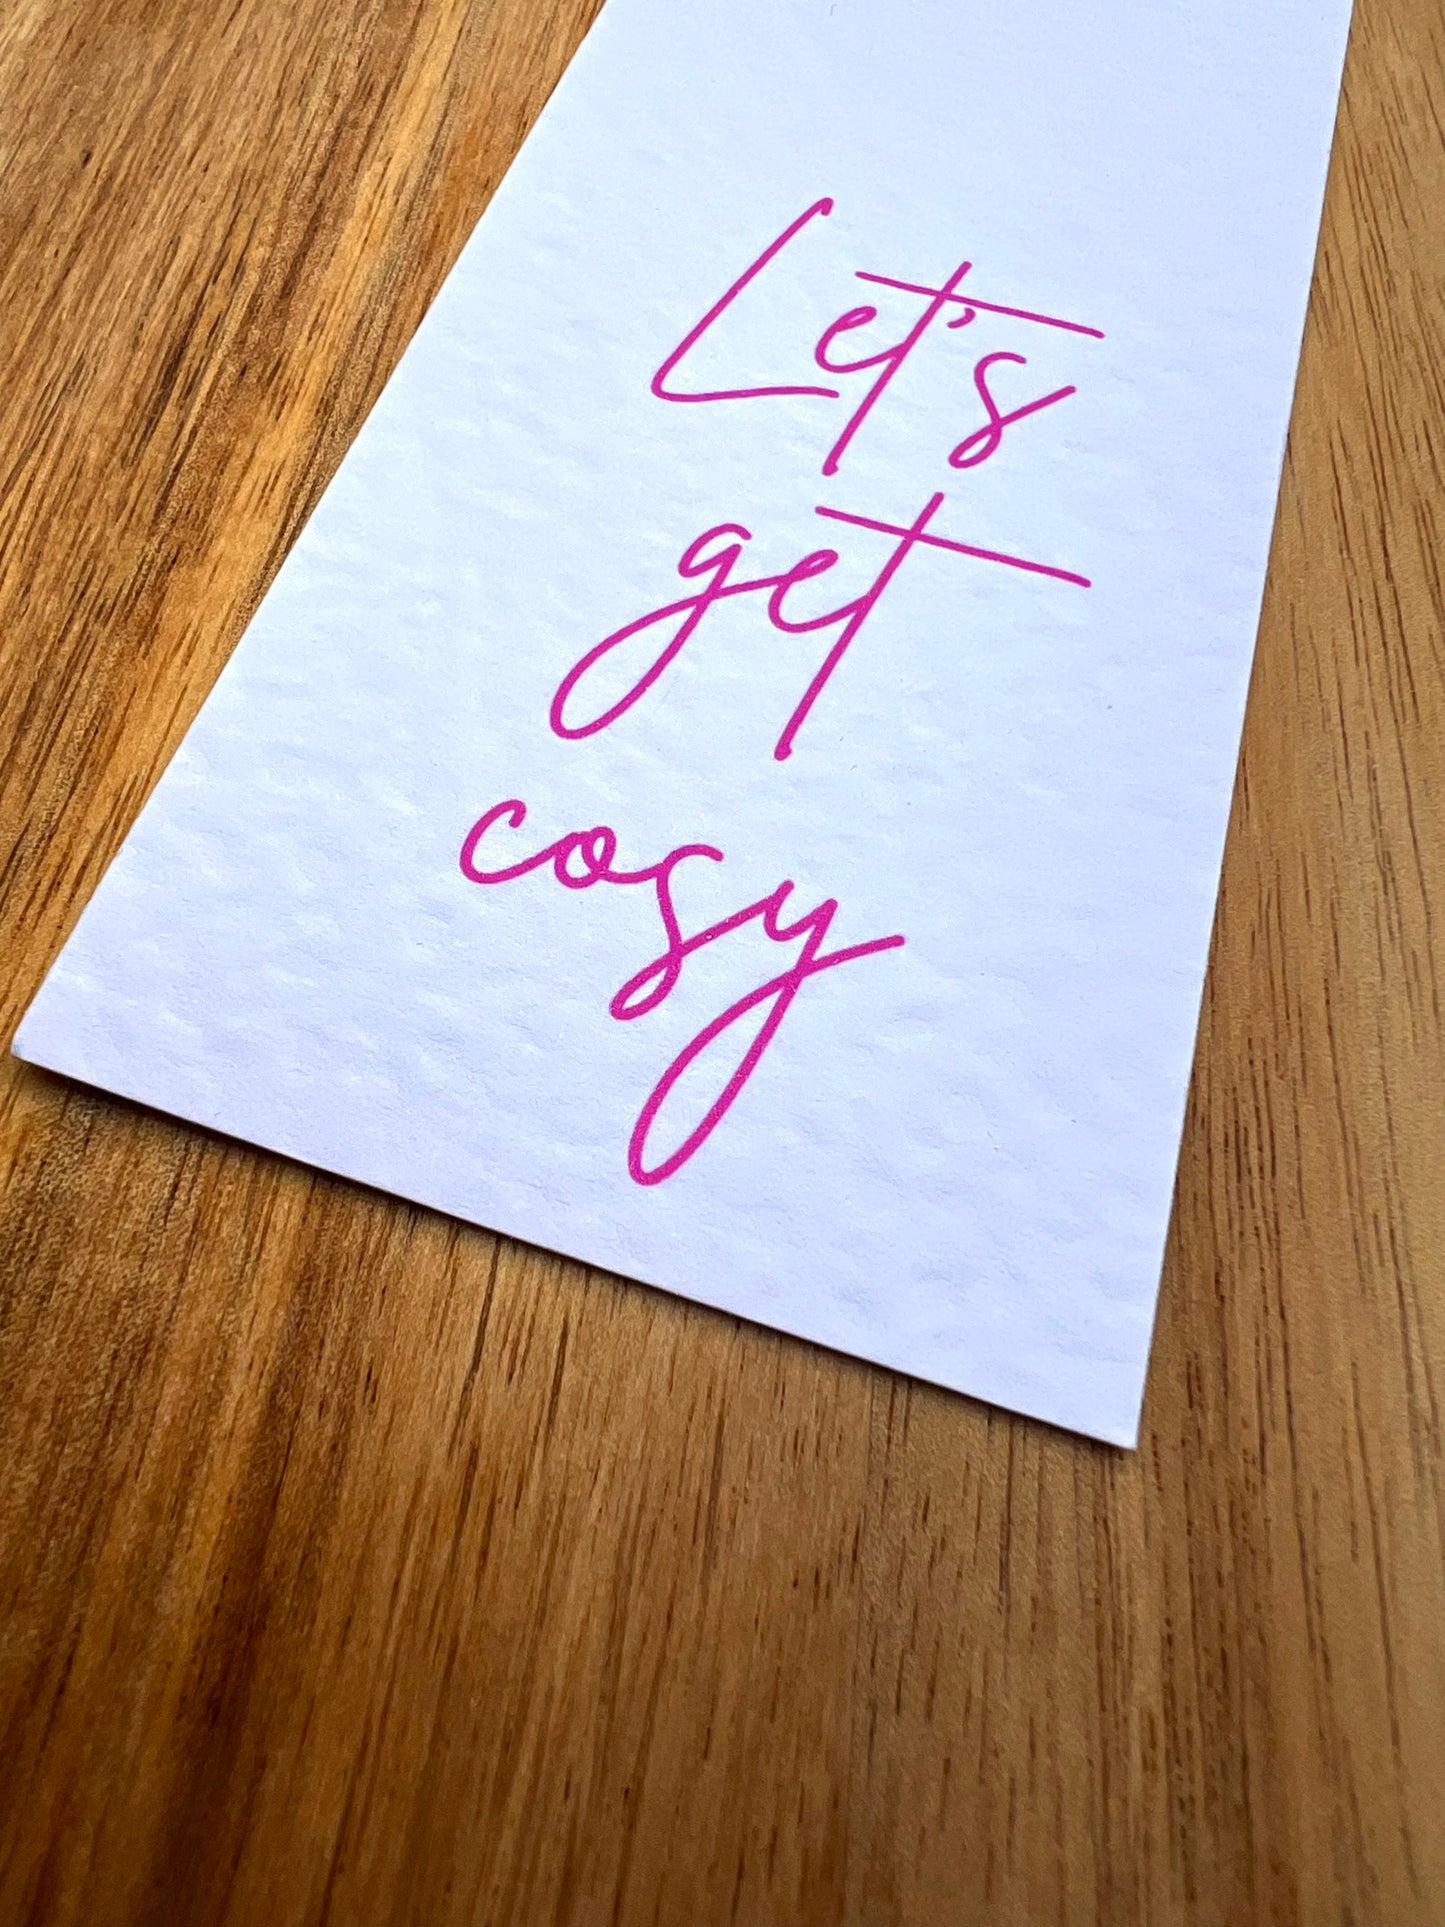 Let's
get
cosy